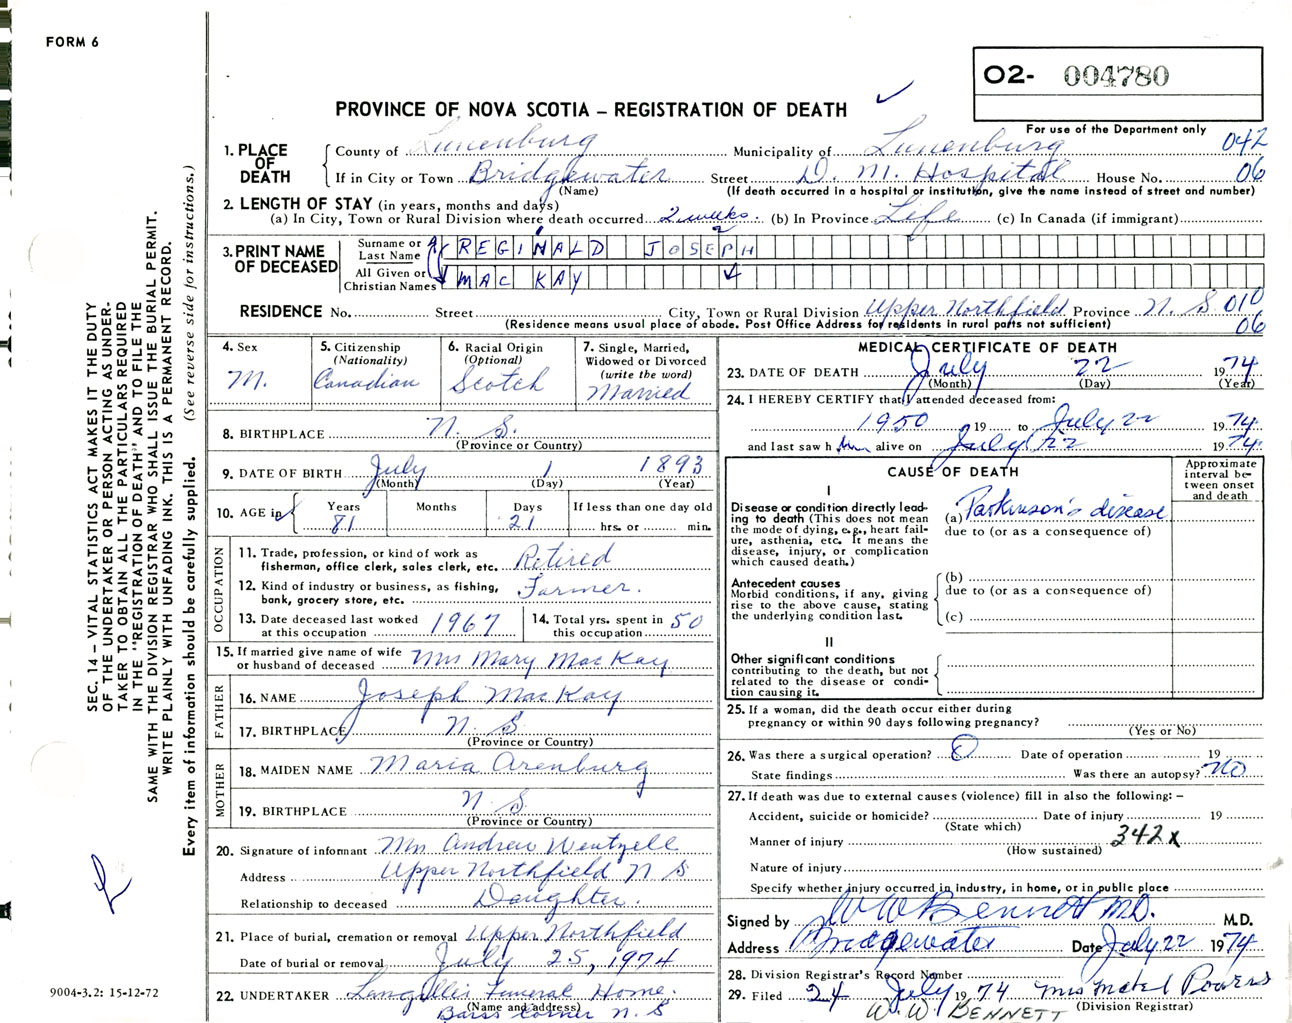 FORM 6
O2- 004780
PROVINCE OF NOVA SCOTIA – REGISTRATION OF DEATH
For use of the Department only
1. PLACE OF DEATH
County of Lunenburg Municipality of Lunenburg 042
If in City or Town Bridgewater Street D. M. Hospital House No. 06
(Name) (If death occurred in a hospital or institution, give the name instead of street and number)
2. LENGTH OF STAY (in years, months and days)
(a) In City, Town or Rural Division where death occurred 2 weeks (b) In Province Life (c) In Canada (if immigrant)
3. PRINT NAME OF DECEASED
Surname or Last Name REGINALD JOSEPH
All Given or Christian Names MAC KAY
RESIDENCE No. Street City, Town or Rural Division Upper Northfield Province N. S. 010
(Residence means usual place of abode. Post Office Address for residents in rural parts not sufficient) 06
4. Sex M.
5. Citizenship (Nationality) Canadian
6. Racial Origin (Optional) Scotch
7. Single, Married, Widowed or Divorced (write the word) Married
8. BIRTHPLACE N. S.
(Province or Country)
9. DATE OF BIRTH July 1 1893
(Month) (Day) (Year)
10. AGE in Years Months Days If less than one day old
81 21 hrs. or min.
OCCUPATION
11. Trade, profession, or kind of work as fisherman, office clerk, sales clerk, etc. Retired
12. Kind of industry or business, as fishing, bank, grocery store, etc. Farmer.
13. Date deceased last worked at this occupation 1967
14. Total yrs. spent in this occupation 50
15. If married give name of wife or husband of deceased Mrs Mary MacKay
FATHER
16. NAME Joseph MacKay
17. BIRTHPLACE N. S.
(Province or Country)
MOTHER
18. MAIDEN NAME Maria Arenburg
19. BIRTHPLACE N. S.
(Province or Country)
20. Signature of informant Mrs Andrew Wentzell
Address Upper Northfield N S
Relationship to deceased Daughter.
21. Place of burial, cremation or removal Upper Northfield
Date of burial or removal July 25, 1974
22. UNDERTAKER Langille's Funeral Home.
(Name and address)
Barss Corner N. S
MEDICAL CERTIFICATE OF DEATH
23. DATE OF DEATH July 22 1974
(Month) (Day) (Year)
24. I HEREBY CERTIFY that I attended deceased from:
1950 19 to July 22 1974
and last saw h im alive on July 22 1974
CAUSE OF DEATH
Approximate interval between onset and death
I
Disease or condition directly leading to death (This does not mean the mode of dying, e.g., heart failure, asthenia, etc. It means the disease, injury, or complication which caused death.)
(a) Parkinson's disease
due to (or as a consequence of)
Antecedent causes
Morbid conditions, if any, giving rise to the above cause, stating the underlying condition last.
(b)
due to (or as a consequence of)
(c)
II
Other significant conditions
contributing to the death, but not related to the disease or condition causing it.
25. If a woman, did the death occur either during pregnancy or within 90 days following pregnancy?
(Yes or No)
26. Was there a surgical operation? O Date of operation 19
State findings Was there an autopsy? NO
27. If death was due to external causes (violence) fill in also the following: –
Accident, suicide or homicide? Date of injury 19
(State which)
Manner of injury 342x
(How sustained)
Nature of injury
Specify whether injury occurred in industry, in home, or in public place
Signed by W W Bennett M.D. M.D.
Address Bridgewater Date July 22 1974
28. Division Registrar's Record Number
29. Filed 24 July 1974 Mrs Mabel Powers
(Division Registrar)
W. W. BENNETT
SEC. 14 – VITAL STATISTICS ACT MAKES IT THE DUTY
OF THE UNDERTAKER OR PERSON ACTING AS UNDER-
TAKER TO OBTAIN ALL THE PARTICULARS REQUIRED
IN THE "REGISTRATION OF DEATH" AND TO FILE THE
SAME WITH THE DIVISION REGISTRAR WHO SHALL ISSUE THE BURIAL PERMIT.
WRITE PLAINLY WITH UNFADING INK. THIS IS A PERMANENT RECORD.
Every item of information should be carefully supplied. (See reverse side for instructions.)
9004-3.2: 15-12-72